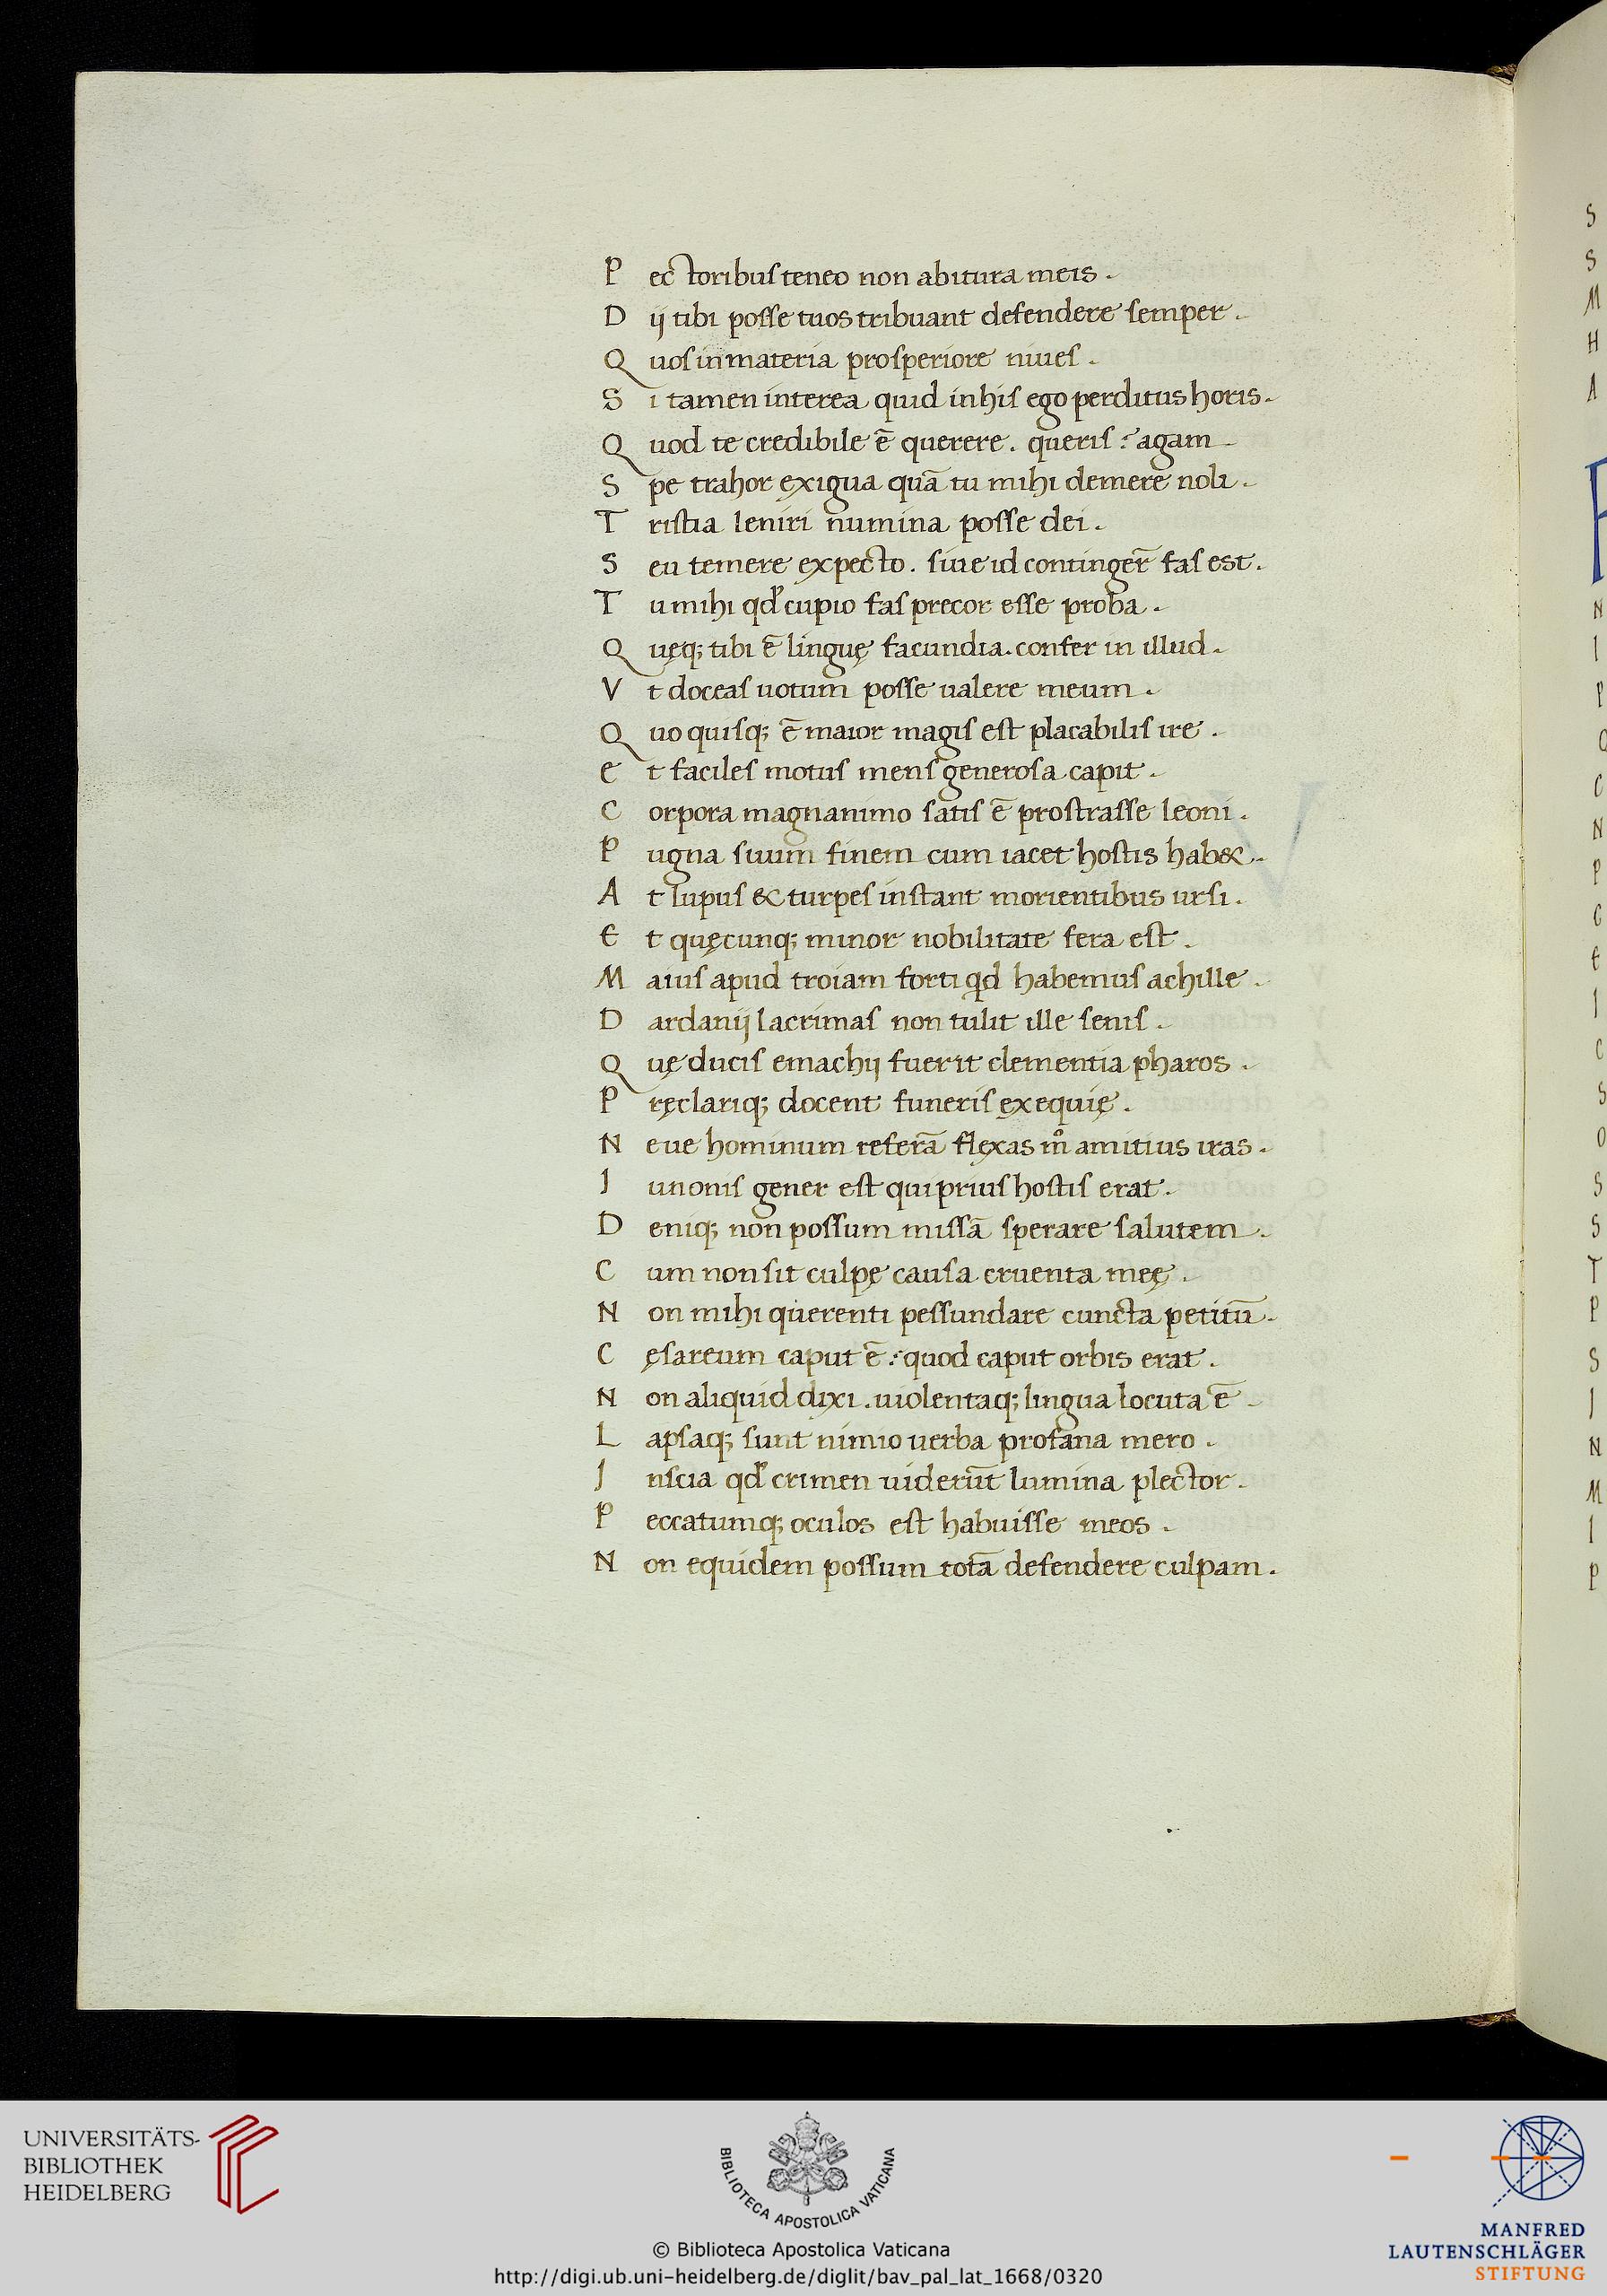 P ectoribus teneo non abitura meis .
D ij tibi posse tuos tribuant defendere semper .
Q uos in materia prosperiore niues .
S i tamen interea quid in his ego perditus horis .
Q uod te credibile ē querere . queris : agam .
S pe trahor exigua quā tu mihi demere noli .
T ristia leniri numina posse dei .
S eu temere expecto . siue id continger̄ fas est .
T u mihi qd̓ cupio fas precor esse proba .
Q uęq; tibi ē linguę facundia . confer in illud .
V t doceas uotum posse ualere meum .
Q uo quisq; ē maior magis est placabilis ire .
E t faciles motus mens generosa capit .
C orpora magnanimo satis ē prostrasse leoni .
P ugna suum finem cum iacet hostis hab& .
A t lupus & turpes instant morientibus ursi .
E t quęcunq; minor nobilitate fera est .
M aius apud troiam forti qd habemus achille .
D ardanij lacrimas non tulit ille senis .
Q uę ducis emachij fuerit clementia pharos .
P ręclariq; docent funeris exequię .
N eue hominum referā flexas mº amitius iras .
J unonis gener est qui prius hostis erat .
D eniq; non possum missā sperare salutem .
C um non sit culpę causa cruenta meę .
N on mihi querenti pessundare cuncta petitū .
C ęsareum caput ē : quod caput orbis erat .
N on aliquid dixi . uiolentaq; lingua locuta ē .
L apsaq; sunt nimio uerba profana mero .
J nscia qd̓ crimen uiderūt lumina plector .
P eccatumq; oculos est habuisse meos .
N on equidem possum totā defendere culpam .
S
S
M
H
A
N
I
P
Q
C
N
P
C
E
I
C
S
O
S
S
T
P
S
J
N
M
I
P
UNIVERSITÄTS-
BIBLIOTHEK
HEIDELBERG
BIBLIOTECA APOSTOLICA VATICANA
© Biblioteca Apostolica Vaticana
http://digi.ub.uni-heidelberg.de/diglit/bav_pal_lat_1668/0320
MANFRED
LAUTENSCHLÄGER
STIFTUNG